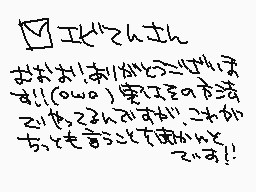 エビてんさん
おおお!ありがとうございま
す!!(owo)実はその方法
でやってるんですが、これが
ちっとも言うことをきかんと
です!!